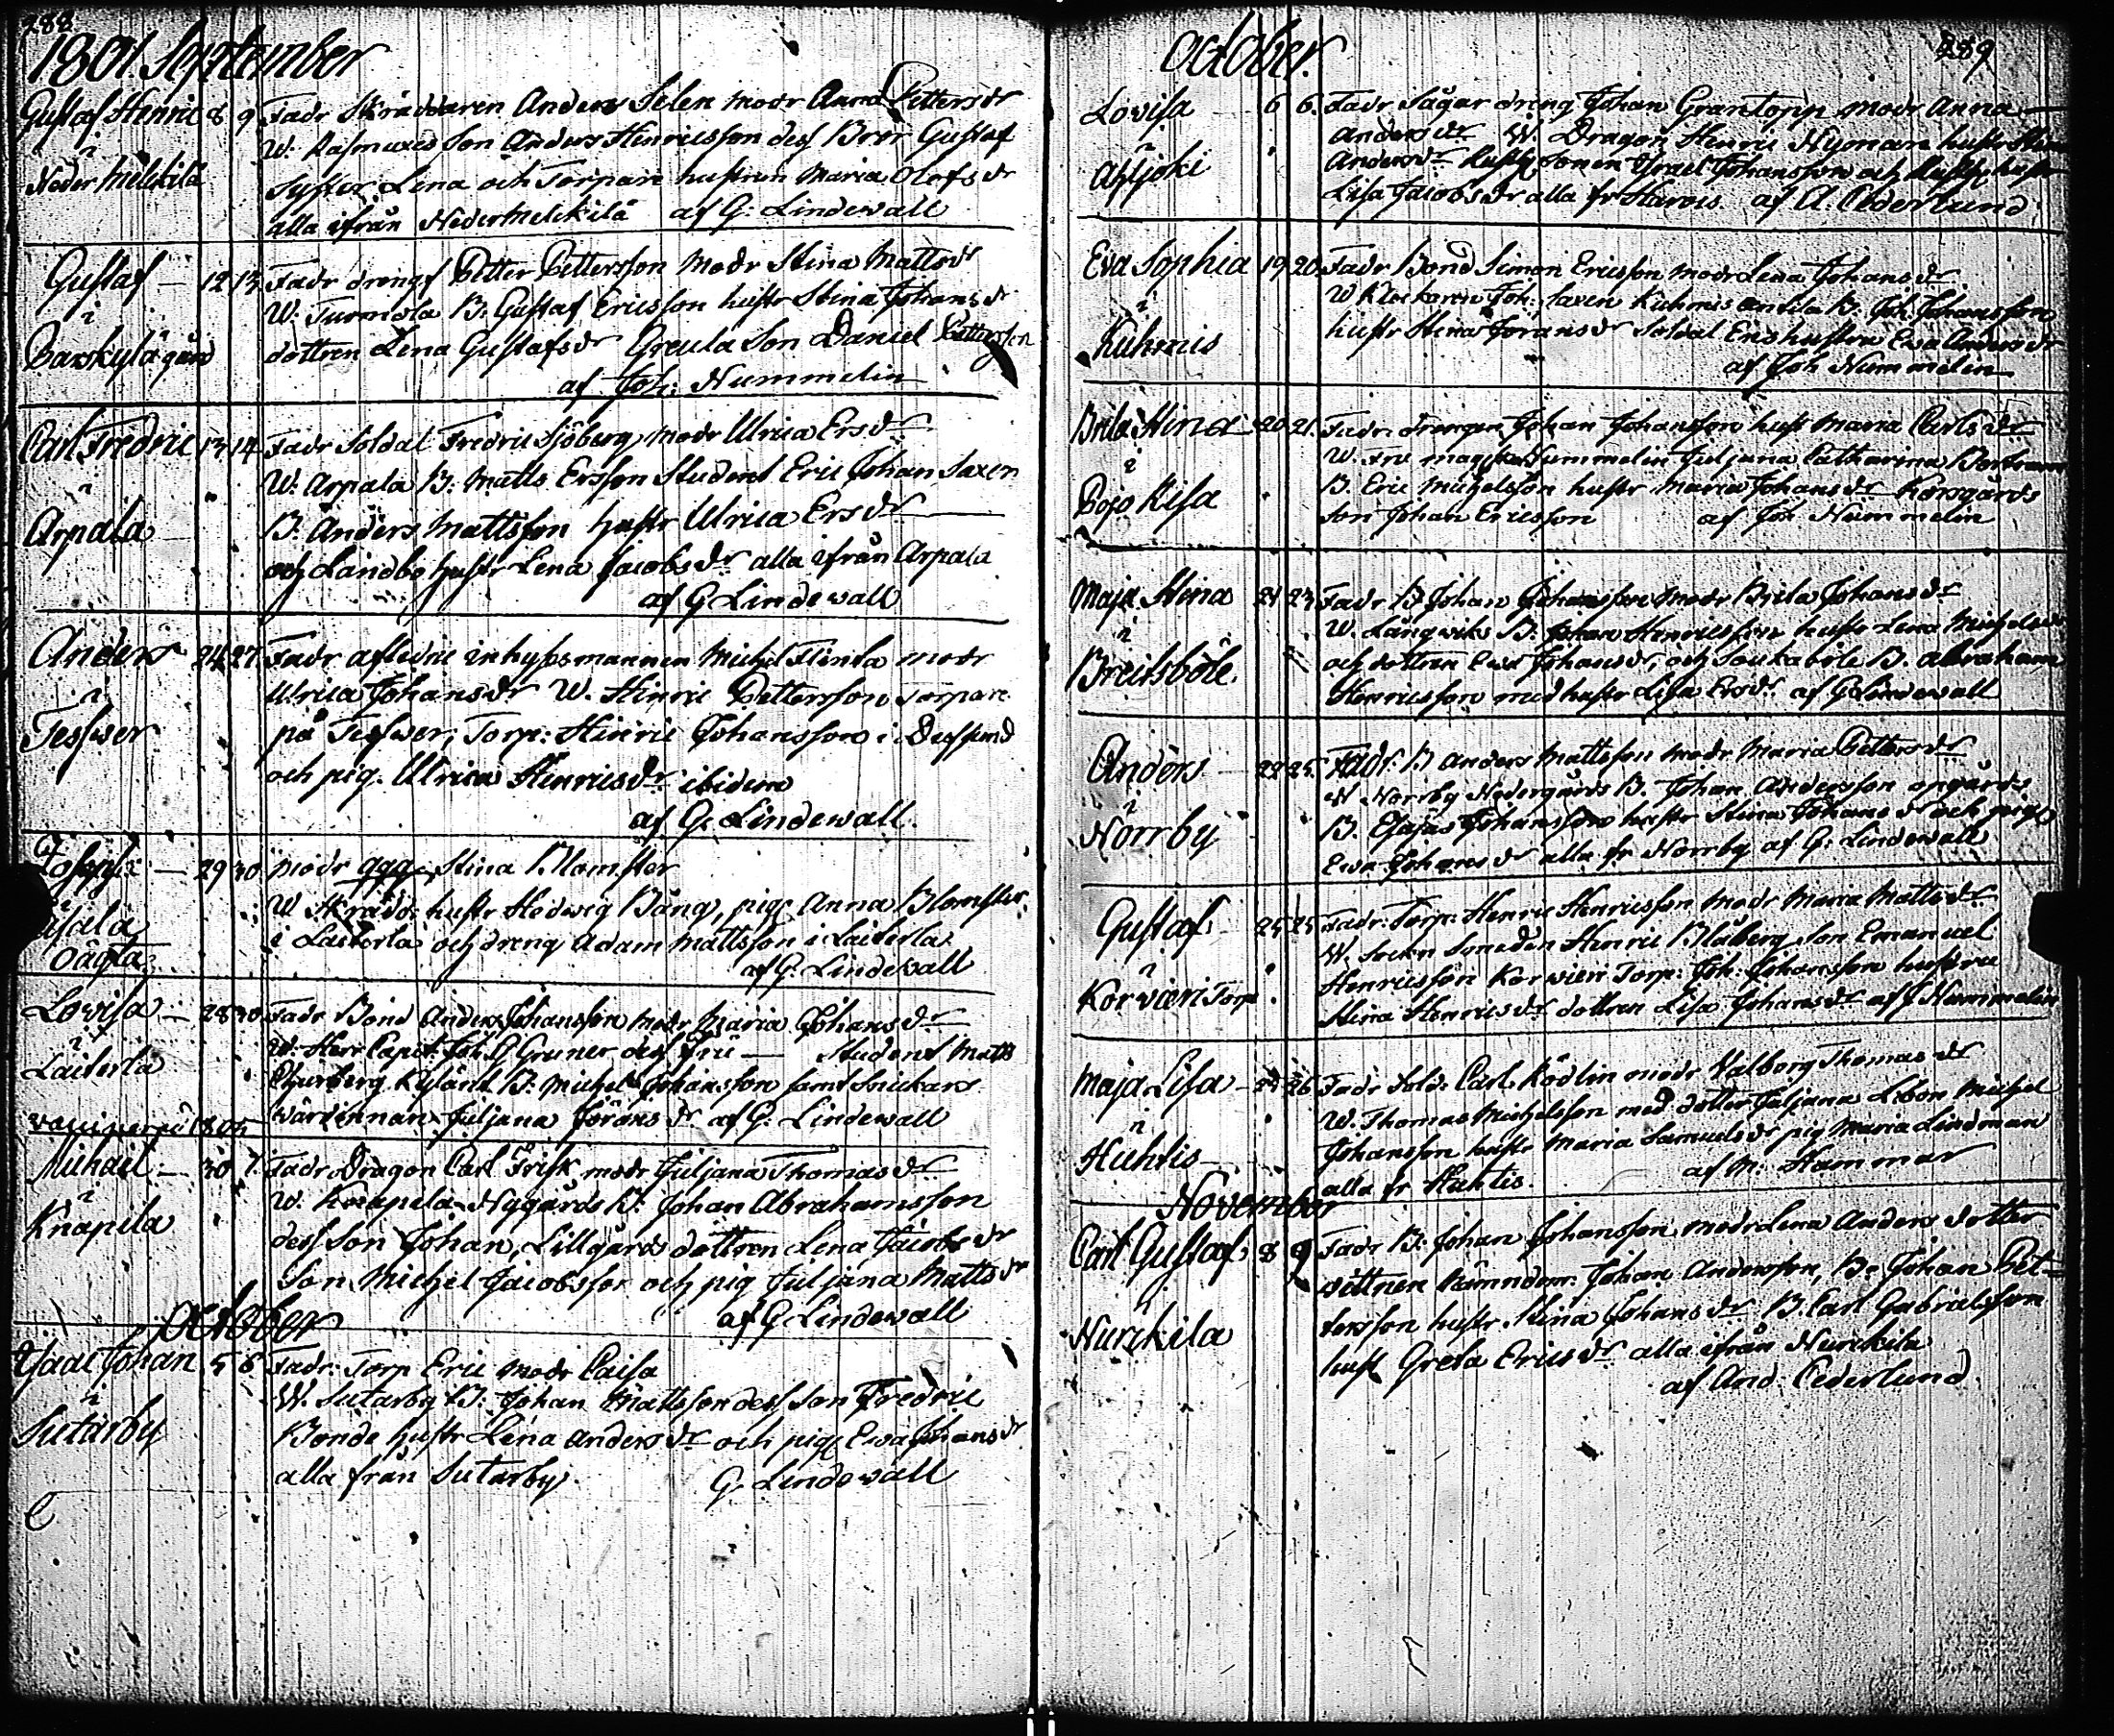 288
1801. September
Gustaf Henric 8 9 Fadr Skräddaren Anders Selen modr Anna Pettersdr
i W. Rasmuxes Son Anders Henricsson dess Bror Gustaf
Neder Melckilä Syster Lena och Torpare hustrun Maria Olofsdr
alla ifrån Nedermelckilä af G: Lindewall
Gustaf 12 13 Fadr drengs Petter Pettersson Modr Stina Mattsdr
i W. Tuomola B. Gustaf Ericsson hustr Stina Johansdr
gård dottren Lena Gustafsdr Greula Son Daniel Pettersson
af Joh: Nummelin
Carl Fredric 13 14 Fadr Soldat Fredric Sjöberg modr Ulrica Ersdr
i W. Arpala B: Matts Ersson Student Eric Johan Saxen
Arpala B. Anders Mattsson hustr Ulrica Ersdr
och Landbo hustr Lena Jacobsdr alla ifrån Arpala
af G Lindewall
Anders 24 27 Fadr afledne inhysesmannen Michel Flinta modr
i Ulrica Johansdr W. Hinric Pettersson Torpare
Tesswer på Tesswer, Torp: Hinric Johansson i
och pig. Ulrica Henricsdr ibidem
af G. Lindewall
Joseph 29 30 modr qqq Stina Blomster
i W Skrädd: hustr Hedwig Bång, pig Anna Blomster
i Laiterla och dreng Adam Mattsson i Laiterla
af G: Lindewall
Lovisa 28 30 Fadr Bond Anders Johansson modr Maria Johansdr
i W: Herr Capit: Joh. G Gruner dess Fru — Student Matts
Laiterla Churberg Kylänt B: Michel Johansson samt Snickars
1805 wärdinnan Juljana Jöransdr af G. Lindewall
Michael 30 7 Fadr Dragon Carl Frisk modr Juljana Thomasdr
i W. Knapela Nygårds B. Johan Abrahamsson
Knapila dess Son Johan, Lillgårds dottren Lena Jacobsdr
Son Michel Jacobsson och pig Juljana Mattsdr
af G Lindewall
October
Isaac Johan 5 6 Fadr: Torp Eric modr Caisa
i W. Sutarby B: Johan Mattsson dess Son Fredric
Sutarby Bonde hustr Lena Andersdr och pig Ewa Johansdr
alla från Sutarby. G. Lindewall
October. 289
Lovisa 6 6. Fadr Sågar dreng Johan Grantopp modr Anna
i Andersdr W. Dragon Henric Nyman hustr Stina
Andersdr Rusth. Sonen Israel Johansson och Rusth. hustr
Lisa Jacobsdr alla fr Harvis. af A Cederlund
Eva Sophia 19 20. Fadr Bond Simon Ericsson modr Lena Johansdr
i W Klockaren Joh: Saxen Kuhmis Antila B. Joh. Johansson
Kuhmis hustr Stina Joransdr Soldat Ers hustru Ewa Andersdr
af Joh Nummelin
Brita Stina 20 21. Fadr. drengen Johan Johansson hust Maria Carlsdr
i W. Fru Nummelin Juljana Catharina
Pojo Kisa B. Eric Michelsson hustr Maria Johansdr
Son Johan Ericsson af Joh Nummelin
Maja Stina 21 23 Fadr B Johan Johansson modr Brita Johansdr
i W. Långwiks B: Johan Henricsson hustr Lena Michelsdr
Breitsböle och dottren Ewa Johansdr, och Soukaböle B. Abraham
Henricsson med hustr Lisa Ersdr af G Lindewall
Anders 22 25. Fadr: B Anders Mattsson modr Maria Pettersdr
i W Norrby Nedergårds B. Johan Andersson opgårds
Norrby B. Esajas Johansson hustr Stina Johansdr och pig
Ewa Johansdr alla fr Norrby af G: Lindewall
Gustaf 25 25 Fadr: Torp: Henric Henricsson modr Maria Mattsdr
i W. Henric Blåberg Son Emanuel
Korvieri Torp Henricsson Korvieri Torp: Joh: Johansson hustru
Stina Henricsdr dottren Lisa Johansdr af J Nummelin
Maja Lisa 25 26 Fadr Sold: Carl Rödlin modr Walborg Thomasdr
i W. Thomas Michelsson med dotter Juljana Michel
Huhtis Johansson hustr Maria Samuelsdr pig Maria Lindman
alla fr Huhtis. af M: Hammar
November
Carl Gustaf 8 9 Fadr B: Johan Johansson modr Lena Anders dotter
i wittnen Nämndem: Johan Andersson, B. Johan Pet-
Nurckila tersson hustr Stina Johansdr B. Carl Gabrielsson
hust Greta Ericsdr alla ifrån Nurckila
af And: Cederlund